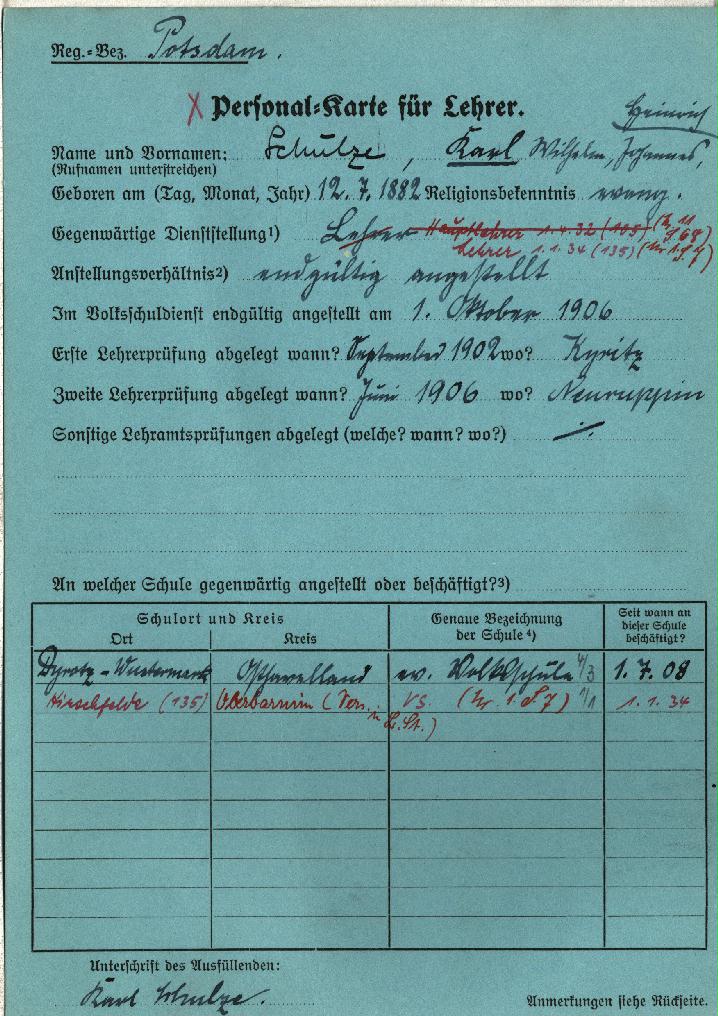 Reg.-Bez. Potsdam.
X Personal-Karte für Lehrer.
Heinrich
Name und Vornamen: Schulze, Karl Wilhelm, Johannes,
(Rufnamen unterstreichen)
Geboren am (Tag, Monat, Jahr) 12. 7. 1882 Religionsbekenntnis evang.
Gegenwärtige Dienststellung¹) Lehrer Hauptlehrer 1. 4. 32 (105)
Lehrer 1. 1. 34 (135)
Anstellungsverhältnis²) endgültig angestellt
Im Volksschuldienst endgültig angestellt am 1. Oktober 1906
Erste Lehrerprüfung abgelegt wann? September 1902 wo? Kyritz
Zweite Lehrerprüfung abgelegt wann? Juni 1906 wo? Neuruppin
Sonstige Lehramtsprüfungen abgelegt (welche? wann? wo?) ./.
An welcher Schule gegenwärtig angestellt oder beschäftigt?³)
Schulort und Kreis Genaue Bezeichnung der Schule⁴) Seit wann an dieser Schule beschäftigt?
Ort Kreis
Dyrotz-Wustermark Osthavelland ev. Volksschule 4/3 1. 7. 08
Hirschfelde (135) Oberbarnim VS. 1/1 1. 1. 34
Unterschrift des Ausfüllenden:
Karl Schulze.
Anmerkungen siehe Rückseite.